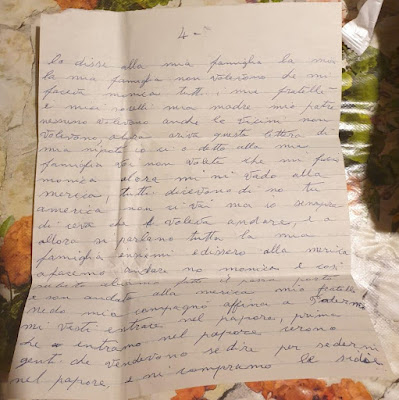 4=
lo disse alla mia famiglia la mia
la mia famiglia non volevano che mi
faceva monica tutti, i miei fratelli
e miei sorelli mia madre mio patre
nesuno volevano anche lo vicini non
volevano, alora ariva questa lettera di
mia nipote io ci o detto alla mia
famiglia voi non volete che mi facio
monica alora mi ni vado alla
merica, tutti dicevano di no tu
america non ci vai ma io sempre
di ceva che voleva andare, e a
allora si parlano tutta la mia
famiglia enziemi edissero alla merica
a facemo andare no monica e cosi
subito abiamo fato il passa porto
e son andata alla merica mio fratello
nedo mia compagnò affina a Palermo
mi vasti entrare nel papore, prima
che entramo nel papore cerono
gent che vendevono sedire per sedermi
nel papore, e mi compramo la sedia